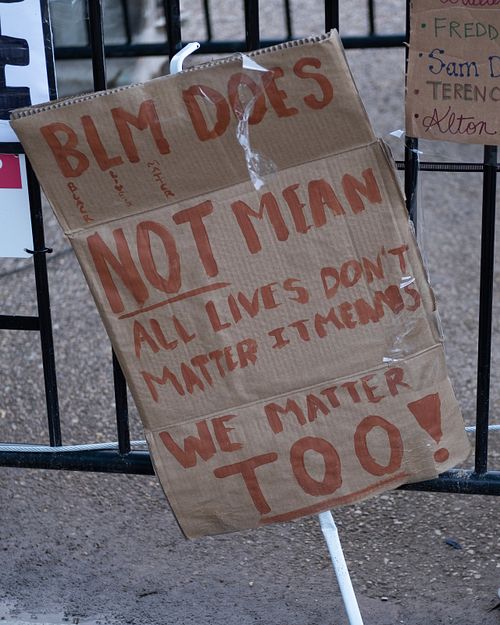 BLM DOES
NOT MEAN
ALL LIVES DON'T
MATTER IT MEANS
WE MATTER
TOO!
FREDD
Sam D
TERENC
Alton